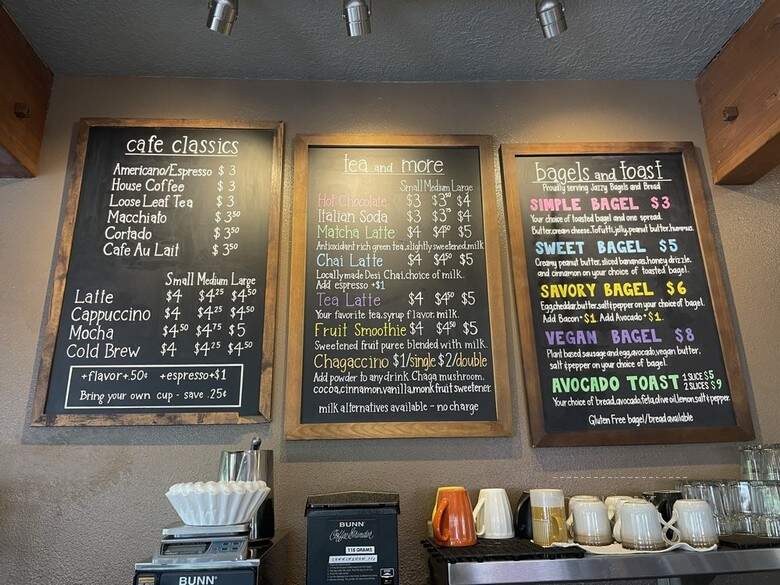 cafe classics
Americano/Espresso $3
House Coffee $3
Loose Leaf Tea $3
Macchiato $3⁵⁰
Cortado $3⁵⁰
Cafe Au Lait $3⁵⁰
Small Medium Large
Latte $4 $4²⁵ $4⁵⁰
Cappuccino $4 $4²⁵ $4⁵⁰
Mocha $4⁵⁰ $4⁷⁵ $5
Cold Brew $4 $4²⁵ $4⁵⁰
+flavor+.50¢ +espresso+$1
Bring your own cup - save .25¢
tea and more
Small Medium Large
Hot Chocolate $3 $3⁵⁰ $4
Italian Soda $3 $3⁵⁰ $4
Matcha Latte $4 $4⁵⁰ $5
Antioxidant rich green tea, slightly sweetened, milk
Chai Latte $4 $4⁵⁰ $5
Locally made Desi Chai, choice of milk.
Add espresso +$1
Tea Latte $4 $4⁵⁰ $5
Your favorite tea, syrup flavor, milk.
Fruit Smoothie $4 $4⁵⁰ $5
Sweetened fruit puree blended with milk.
Chagaccino $1/single $2/double
Add powder to any drink. Chaga mushroom,
cocoa, cinnamon, vanilla, monk fruit sweetener
milk alternatives available - no charge
bagels and toast
Proudly serving Jazzy Bagels and Bread
SIMPLE BAGEL $3
Your choice of toasted bagel and one spread.
Butter, cream cheese, Tofutti, jelly, peanut butter, hummus.
SWEET BAGEL $5
Creamy peanut butter, sliced bananas, honey drizzle,
and cinnamon on your choice of toasted bagel.
SAVORY BAGEL $6
Egg, cheddar, butter, salt+pepper on your choice of bagel.
Add Bacon+$1 Add Avocado+$1.
VEGAN BAGEL $8
Plant based sausage and egg, avocado, vegan butter,
salt+pepper on your choice of bagel.
AVOCADO TOAST 1 SLICE $5
2 SLICES $9
Your choice of bread, avocado, feta, olive oil, lemon, salt+pepper.
Gluten Free bagel/bread available
BUNN®
BUNN
Coffee Grinder